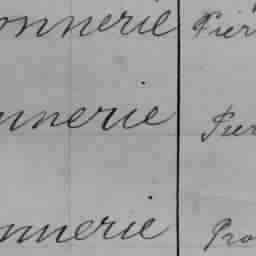 onnerie Pier
nnerie Pier
nnerie Pro